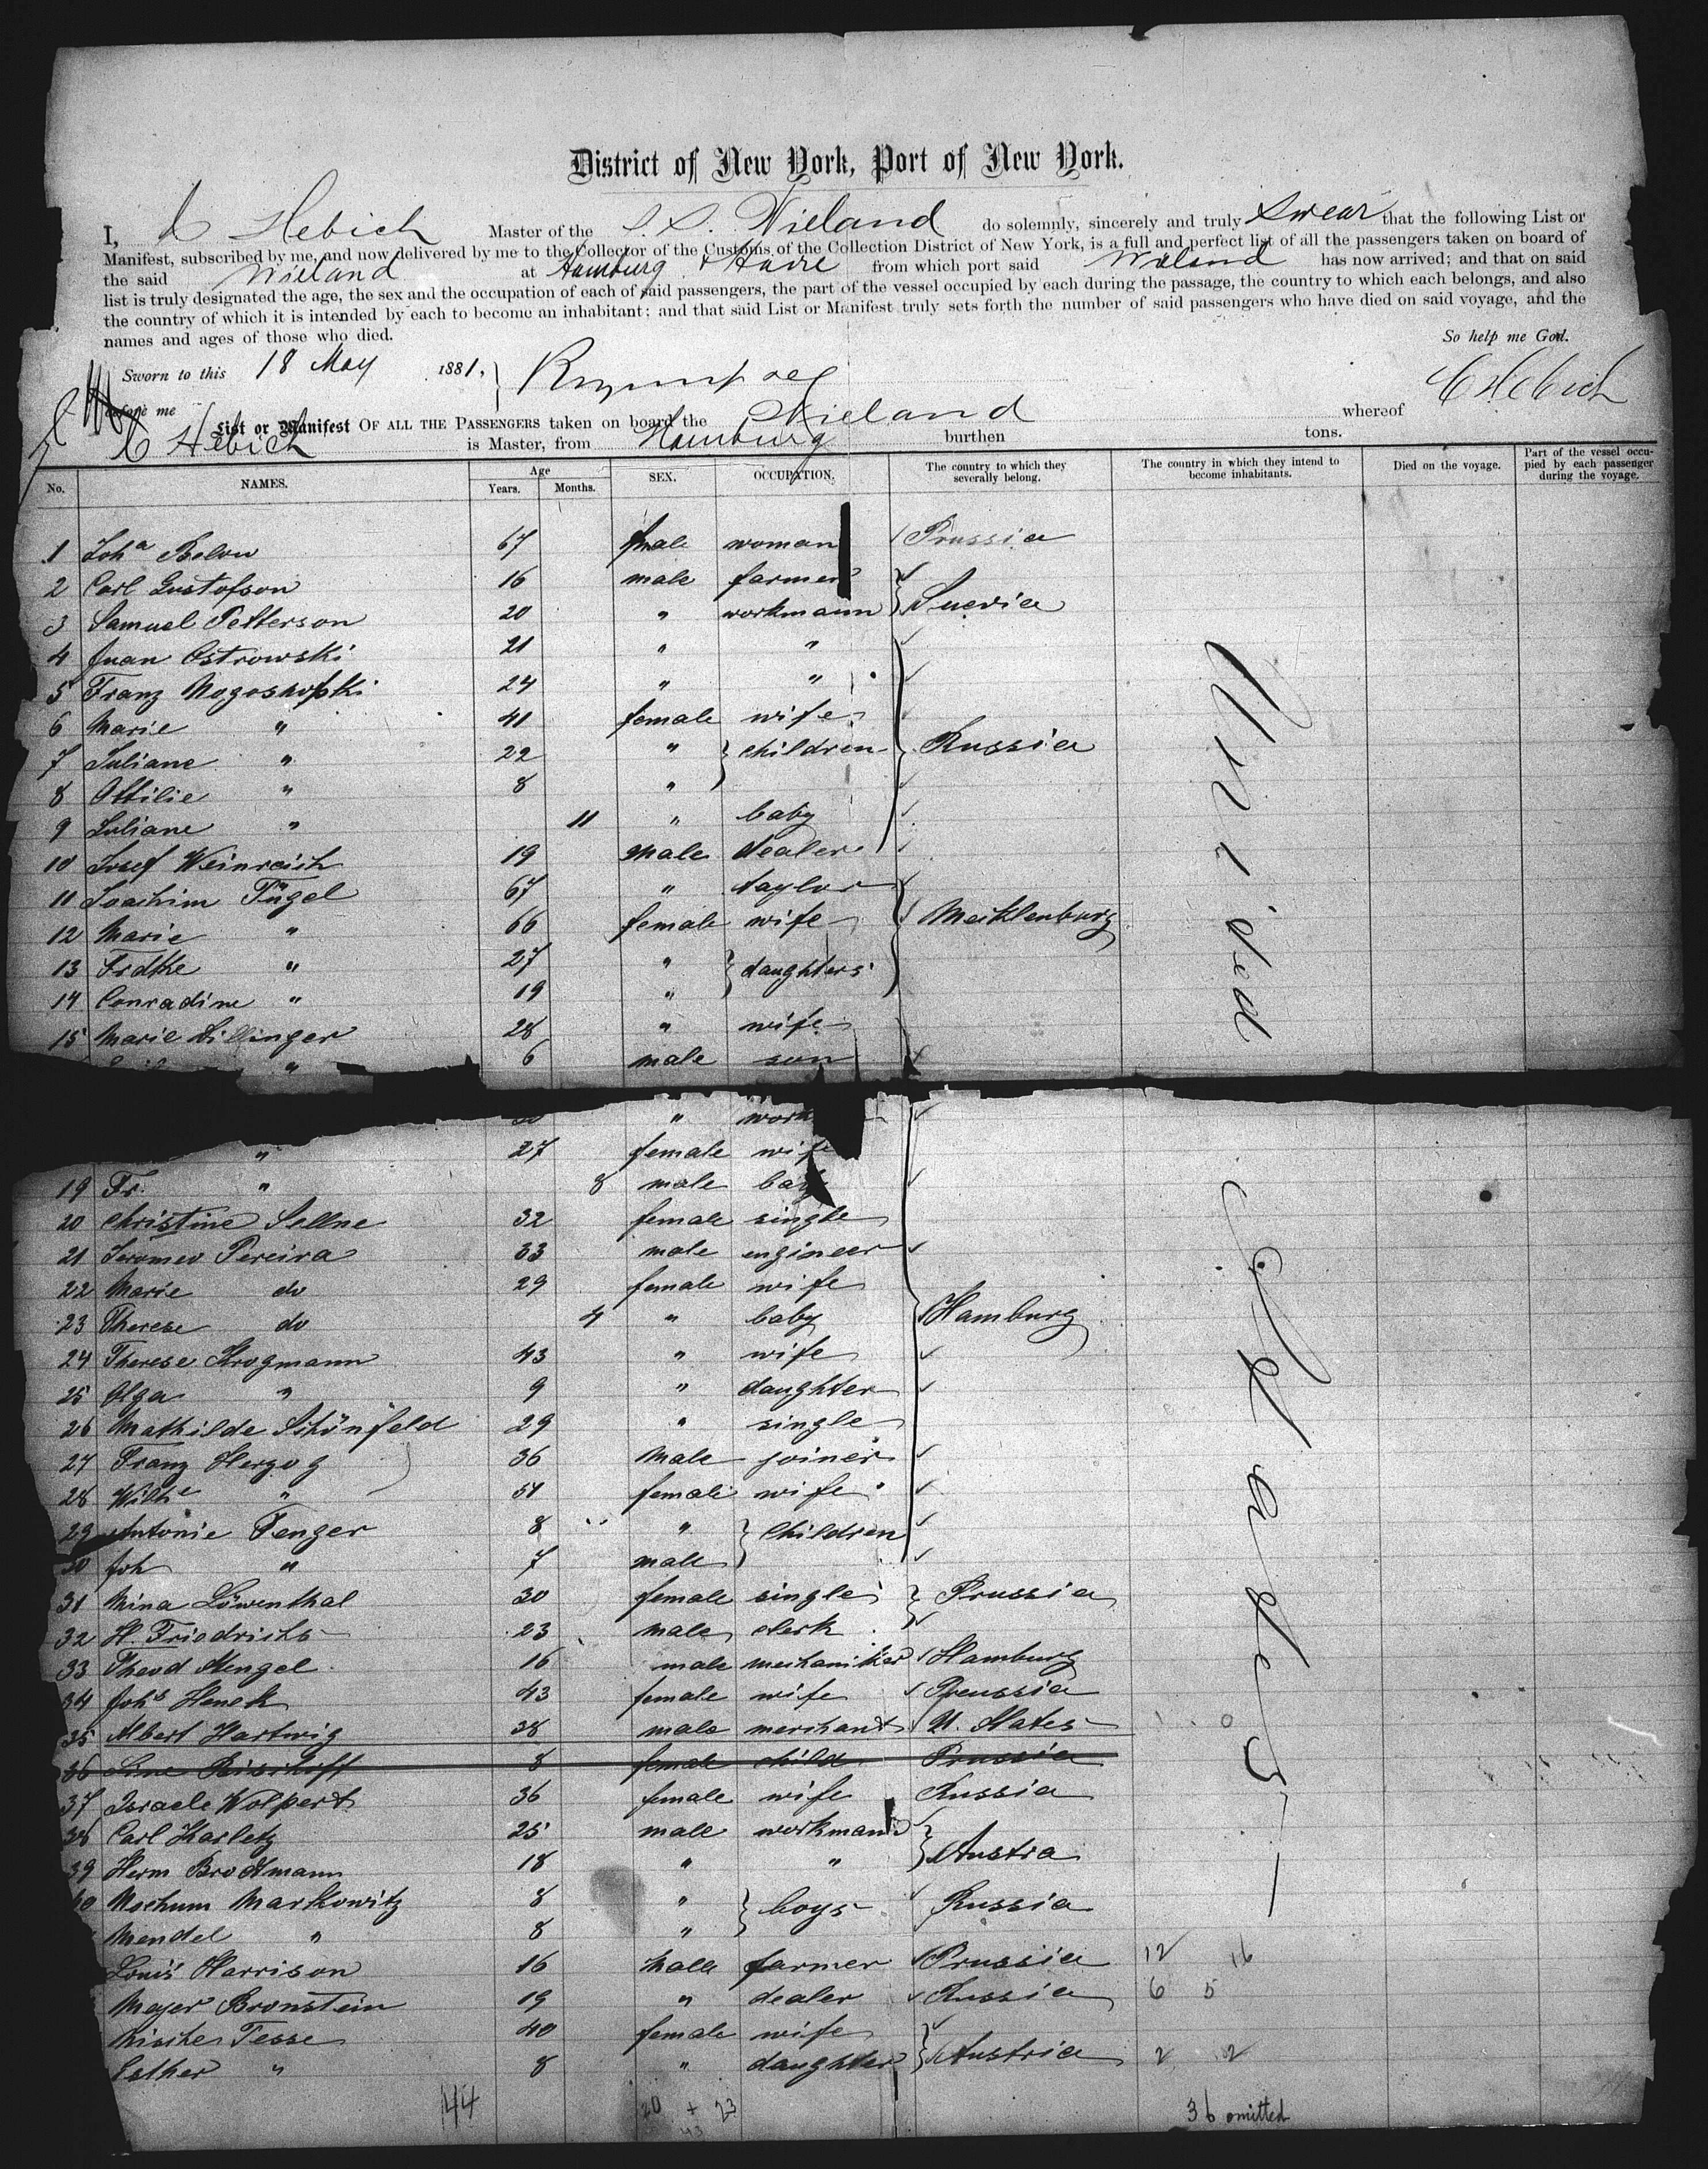 District of New York, Port of New York.
I, C Hebich Master of the S.S. Wieland do solemnly, sincerely and truly Swear that the following List or
Manifest, subscribed by me, and now delivered by me to the Collector of the Customs of the Collection District of New York, is a full and perfect list of all the passengers taken on board of
the said Wieland at Hamburg & Havre from which port said Wieland has now arrived; and that on said
list is truly designated the age, the sex and the occupation of each of said passengers, the part of the vessel occupied by each during the passage, the country to which each belongs, and also
the country of which it is intended by each to become an inhabitant; and that said List or Manifest truly sets forth the number of said passengers who have died on said voyage, and the
names and ages of those who died. So help me God.
Sworn to this 18 May 1881, C Hebich
before me
List or Manifest OF ALL THE PASSENGERS taken on board the Wieland whereof
C Hebich is Master, from Hamburg burthen tons.
No. NAMES. Age Years. Months. SEX. OCCUPATION. The country to which they severally belong. The country in which they intend to become inhabitants. Died on the voyage. Part of the vessel occupied by each passenger during the voyage.
1 Joha Below 67 fmale woman Prussia
2 Carl Gustofson 16 male farmer
3 Samuel Petterson 20 " workmann Suevia
4 Juan Ostrowski 21 " "
5 Franz 24 " "
6 Marie " 41 female wife
7 Juliane " 22 " children Russia
8 Ottilie " 8 "
9 Juliane " 11 " baby
10 Josef Weinreich 19 male dealer
11 Joachim Tügel 67 " taylor
12 Marie " 66 female wife Mecklenburg
13 Frdke " 27 " daughters
14 Conradine " 19 "
15 Marie Dillinger 28 " wife
" 6 male son
" work
" 27 female wife
19 Fr. " 8 male baby
20 Christine Sellne 32 female single
21 Jeromeo Pereira 33 male engineer
22 Marie do 29 female wife
23 Therese do 4 " baby Hamburg
24 Therese Krogmann 43 " wife
25 Olga " 9 " daughter
26 Mathilde Schönfeld 29 " single
27 Franz Herzog 36 male joiner
28 Wilhe " 51 female wife
29 Antonie Fenger 8 " children
30 Joh " 7 male
31 Mina Löwenthal 30 female single Prussia
32 H. Friedrichs 23 male clerk
33 Theod Mengel 16 male mechaniker Hamburg
34 Johs Henck 43 female wife Preussia
35 Albert Hartwig 38 male merchant U. States
36 Line Bischoff 8 female child Prussia
37 Israele Wolpert 36 female wife Russia
38 Carl Karletz 25 male workman
39 Herm Brodtmann 18 " " Austria
40 Nochum Markowitz 8 " boys Russia
Mendel " 8 "
Louis Harrison 16 male farmer Prussia 12 16
Mayer Bronstein 19 " dealer Russia 6 5
Tesse 40 female wife
Esther " 8 " daughter Austria 2 2
United States
44 20 + 23 36 omitted
43